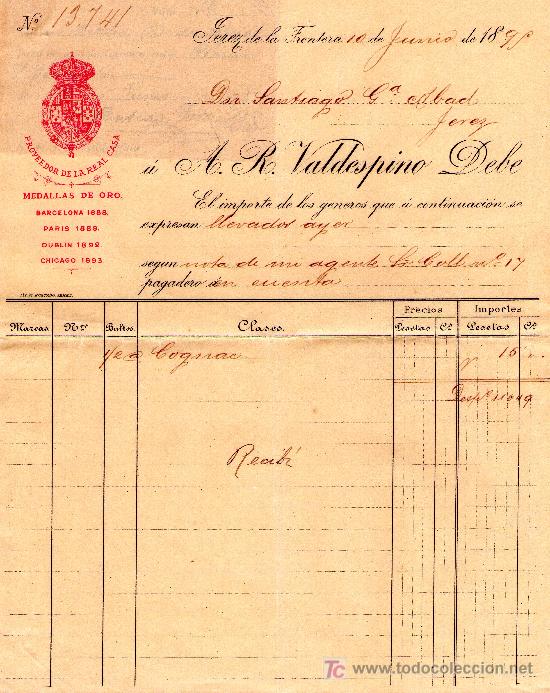 Nº 13.741
Jerez de la Frontera 10 de Junio de 18
Dn Santiago Gª Abad
Jerez
á A. R. Valdespino Debe
PROVEEDOR DE LA REAL CASA
MEDALLAS DE ORO.
BARCELONA 1888.
PARIS 1889.
DUBLIN 1892.
CHICAGO 1893
El importe de los generos que á continuación se
expresan llevados ayer
segun nota de mi agente nº 17
pagadero en cuenta
Marcas. Nos Bultos. Clases. Precios Importes
Pesetas Cs Pesetas Cs
1/2 Cognac 15
Recibí
TC www.todocoleccion.net